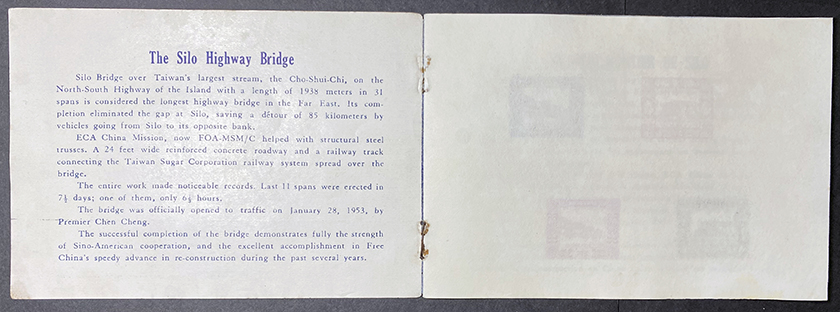 The Silo Highway Bridge
Silo Bridge over Taiwan's largest stream, the Cho-Shui-Chi, on the
North-South Highway of the Island with a length of 1938 meters in 31
spans is considered the longest highway bridge in the Far East. Its com-
pletion eliminated the gap at Silo, saving a détour of 85 kilometers by
vehicles going from Silo to its opposite bank.
ECA China Mission, now FOA-MSM/C helped with structural steel
trusses. A 24 feet wide reinforced concrete roadway and a railway track
connecting the Taiwan Sugar Corporation railway system spread over the
bridge.
The entire work made noticeable records. Last 11 spans were erected in
7½ days; one of them, only 6½ hours.
The bridge was officially opened to traffic on January 28, 1953, by
Premier Chen Cheng.
The successful completion of the bridge demonstrates fully the strength
of Sino-American cooperation, and the excellent accomplishment in Free
China's speedy advance in re-construction during the past several years.